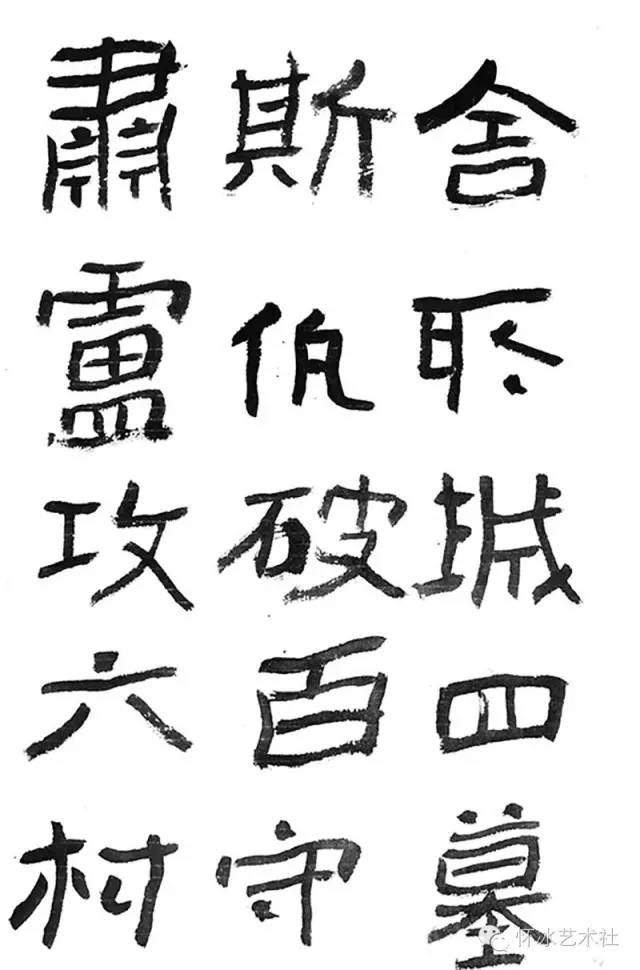 肅斯舍
盧
攻破城
六百四
村守墓
怀水艺术社